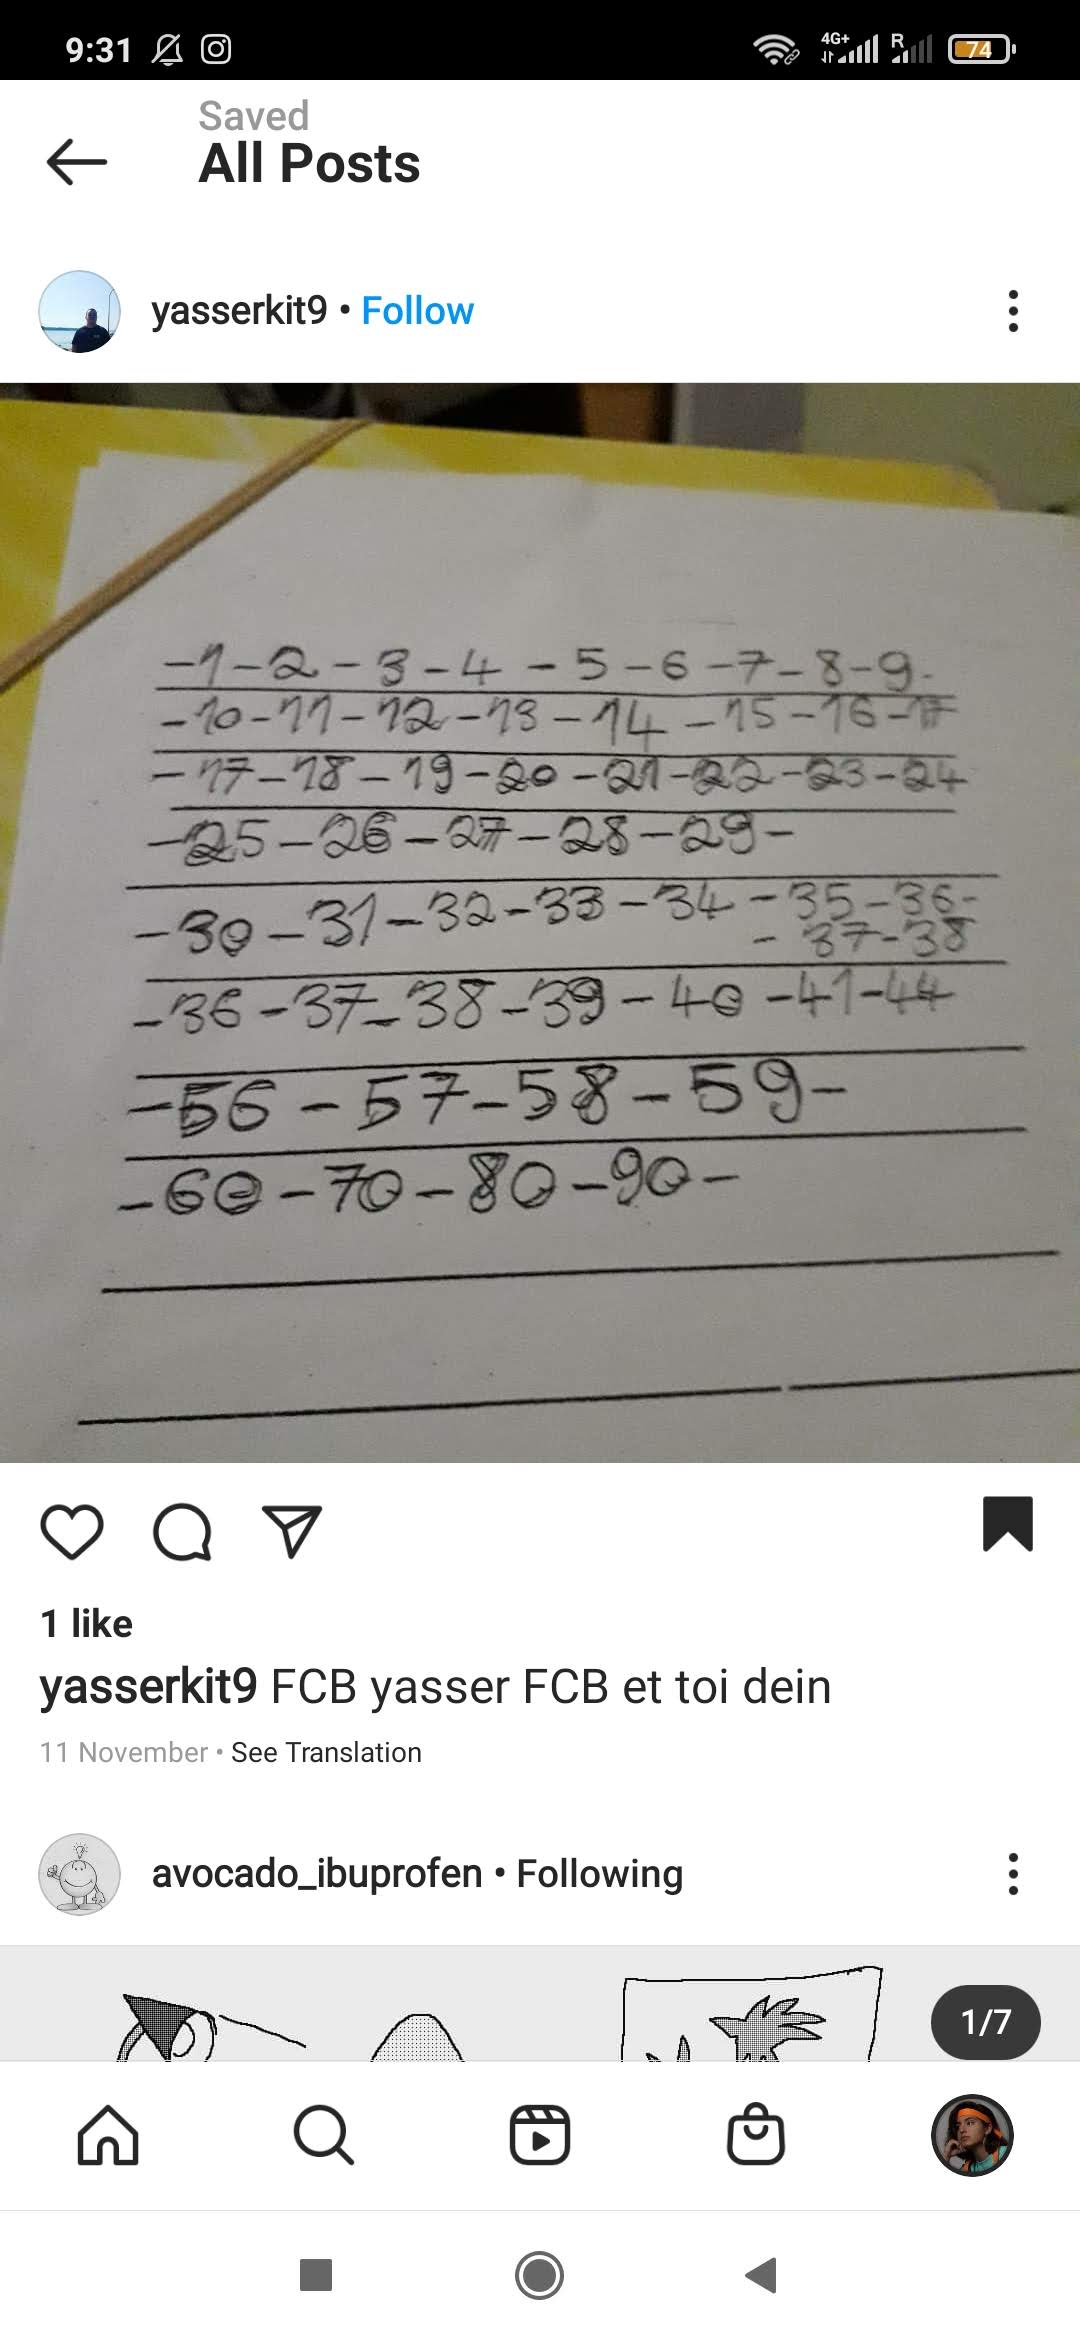 9:31 4G+ R 74
Saved
All Posts
yasserkit9 • Follow
-1-2-3-4-5-6-7-8-9-
-10-11-12-13-14-15-16-17
-17-18-19-20-21-22-23-24
-25-26-27-28-29-
-30-31-32-33-34-35-36-
-37-38
-36-37-38-39-40-41-44
-56-57-58-59-
-60-70-80-90-
1 like
yasserkit9 FCB yasser FCB et toi dein
11 November • See Translation
avocado_ibuprofen • Following
1/7